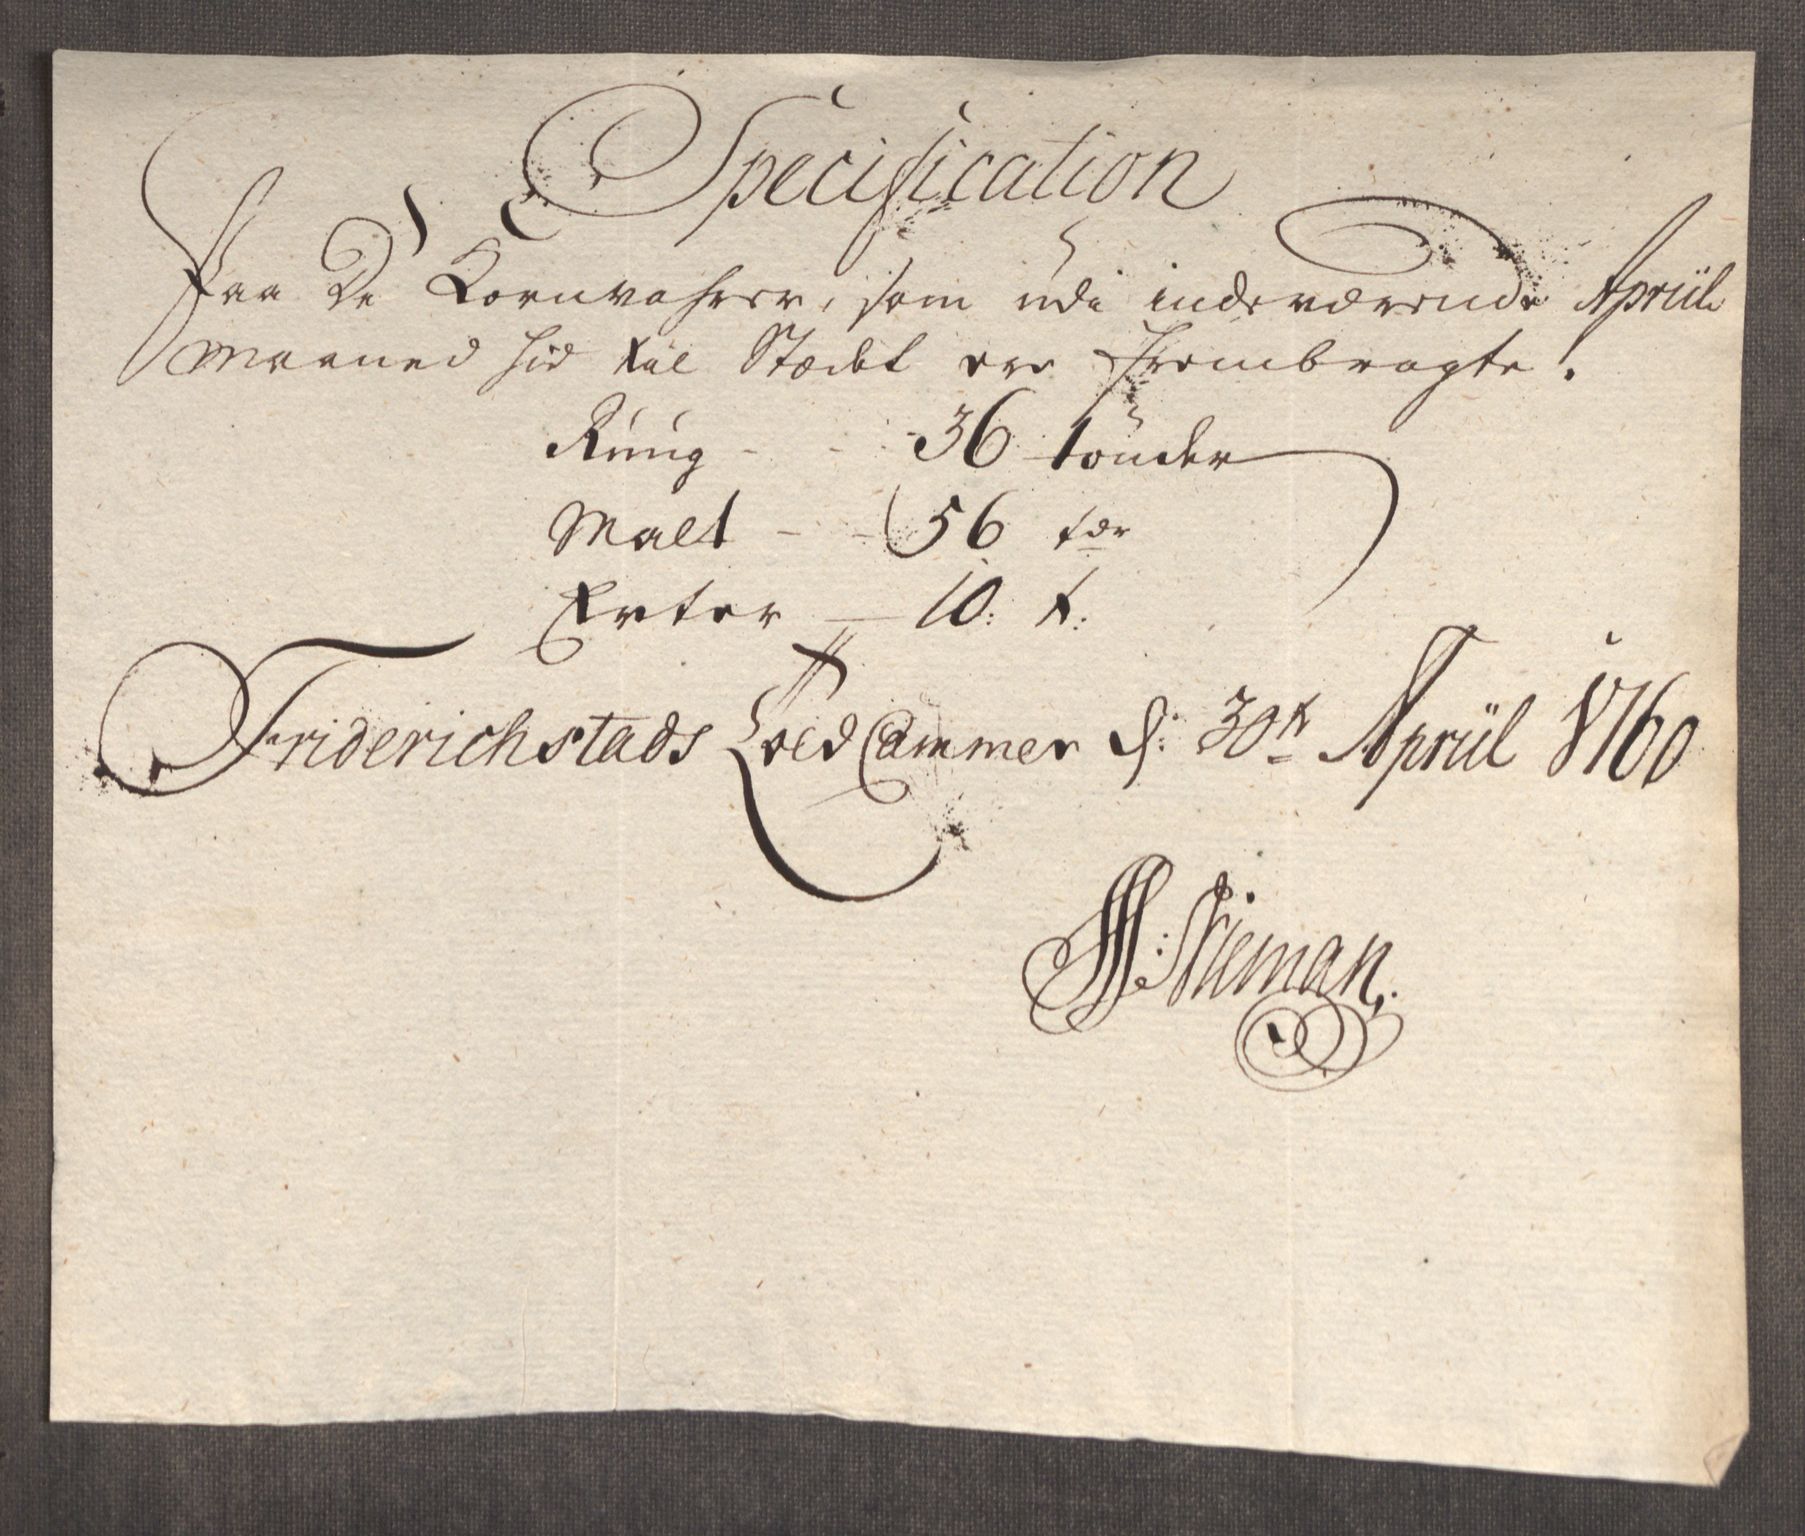 Specification
Paa De Kornvahrer, som udi indeværende Apriil
Maaned hid til Stædet ere frembragte.
Rüug - - - 36 tönder
Malt - - 56 tdr
Erter — 10: t:
Friderichstads Told Cammer d: 30te Apriil 1760
Nieman